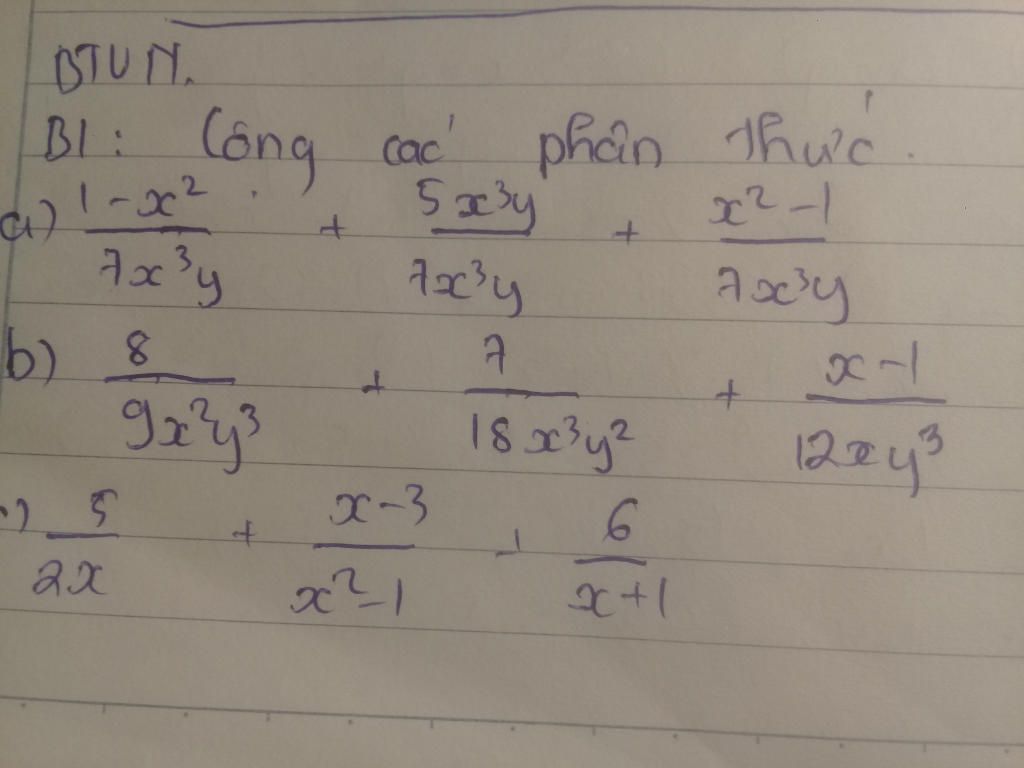 BTVN.
B1: Cộng các phân thức.
a) 1-x²/7x³y + 5x³y/7x³y + x²-1/7x³y
b) 8/9x²y³ + 7/18x³y² + x-1/12xy³
5/2x + x-3/x²-1 + 6/x+1